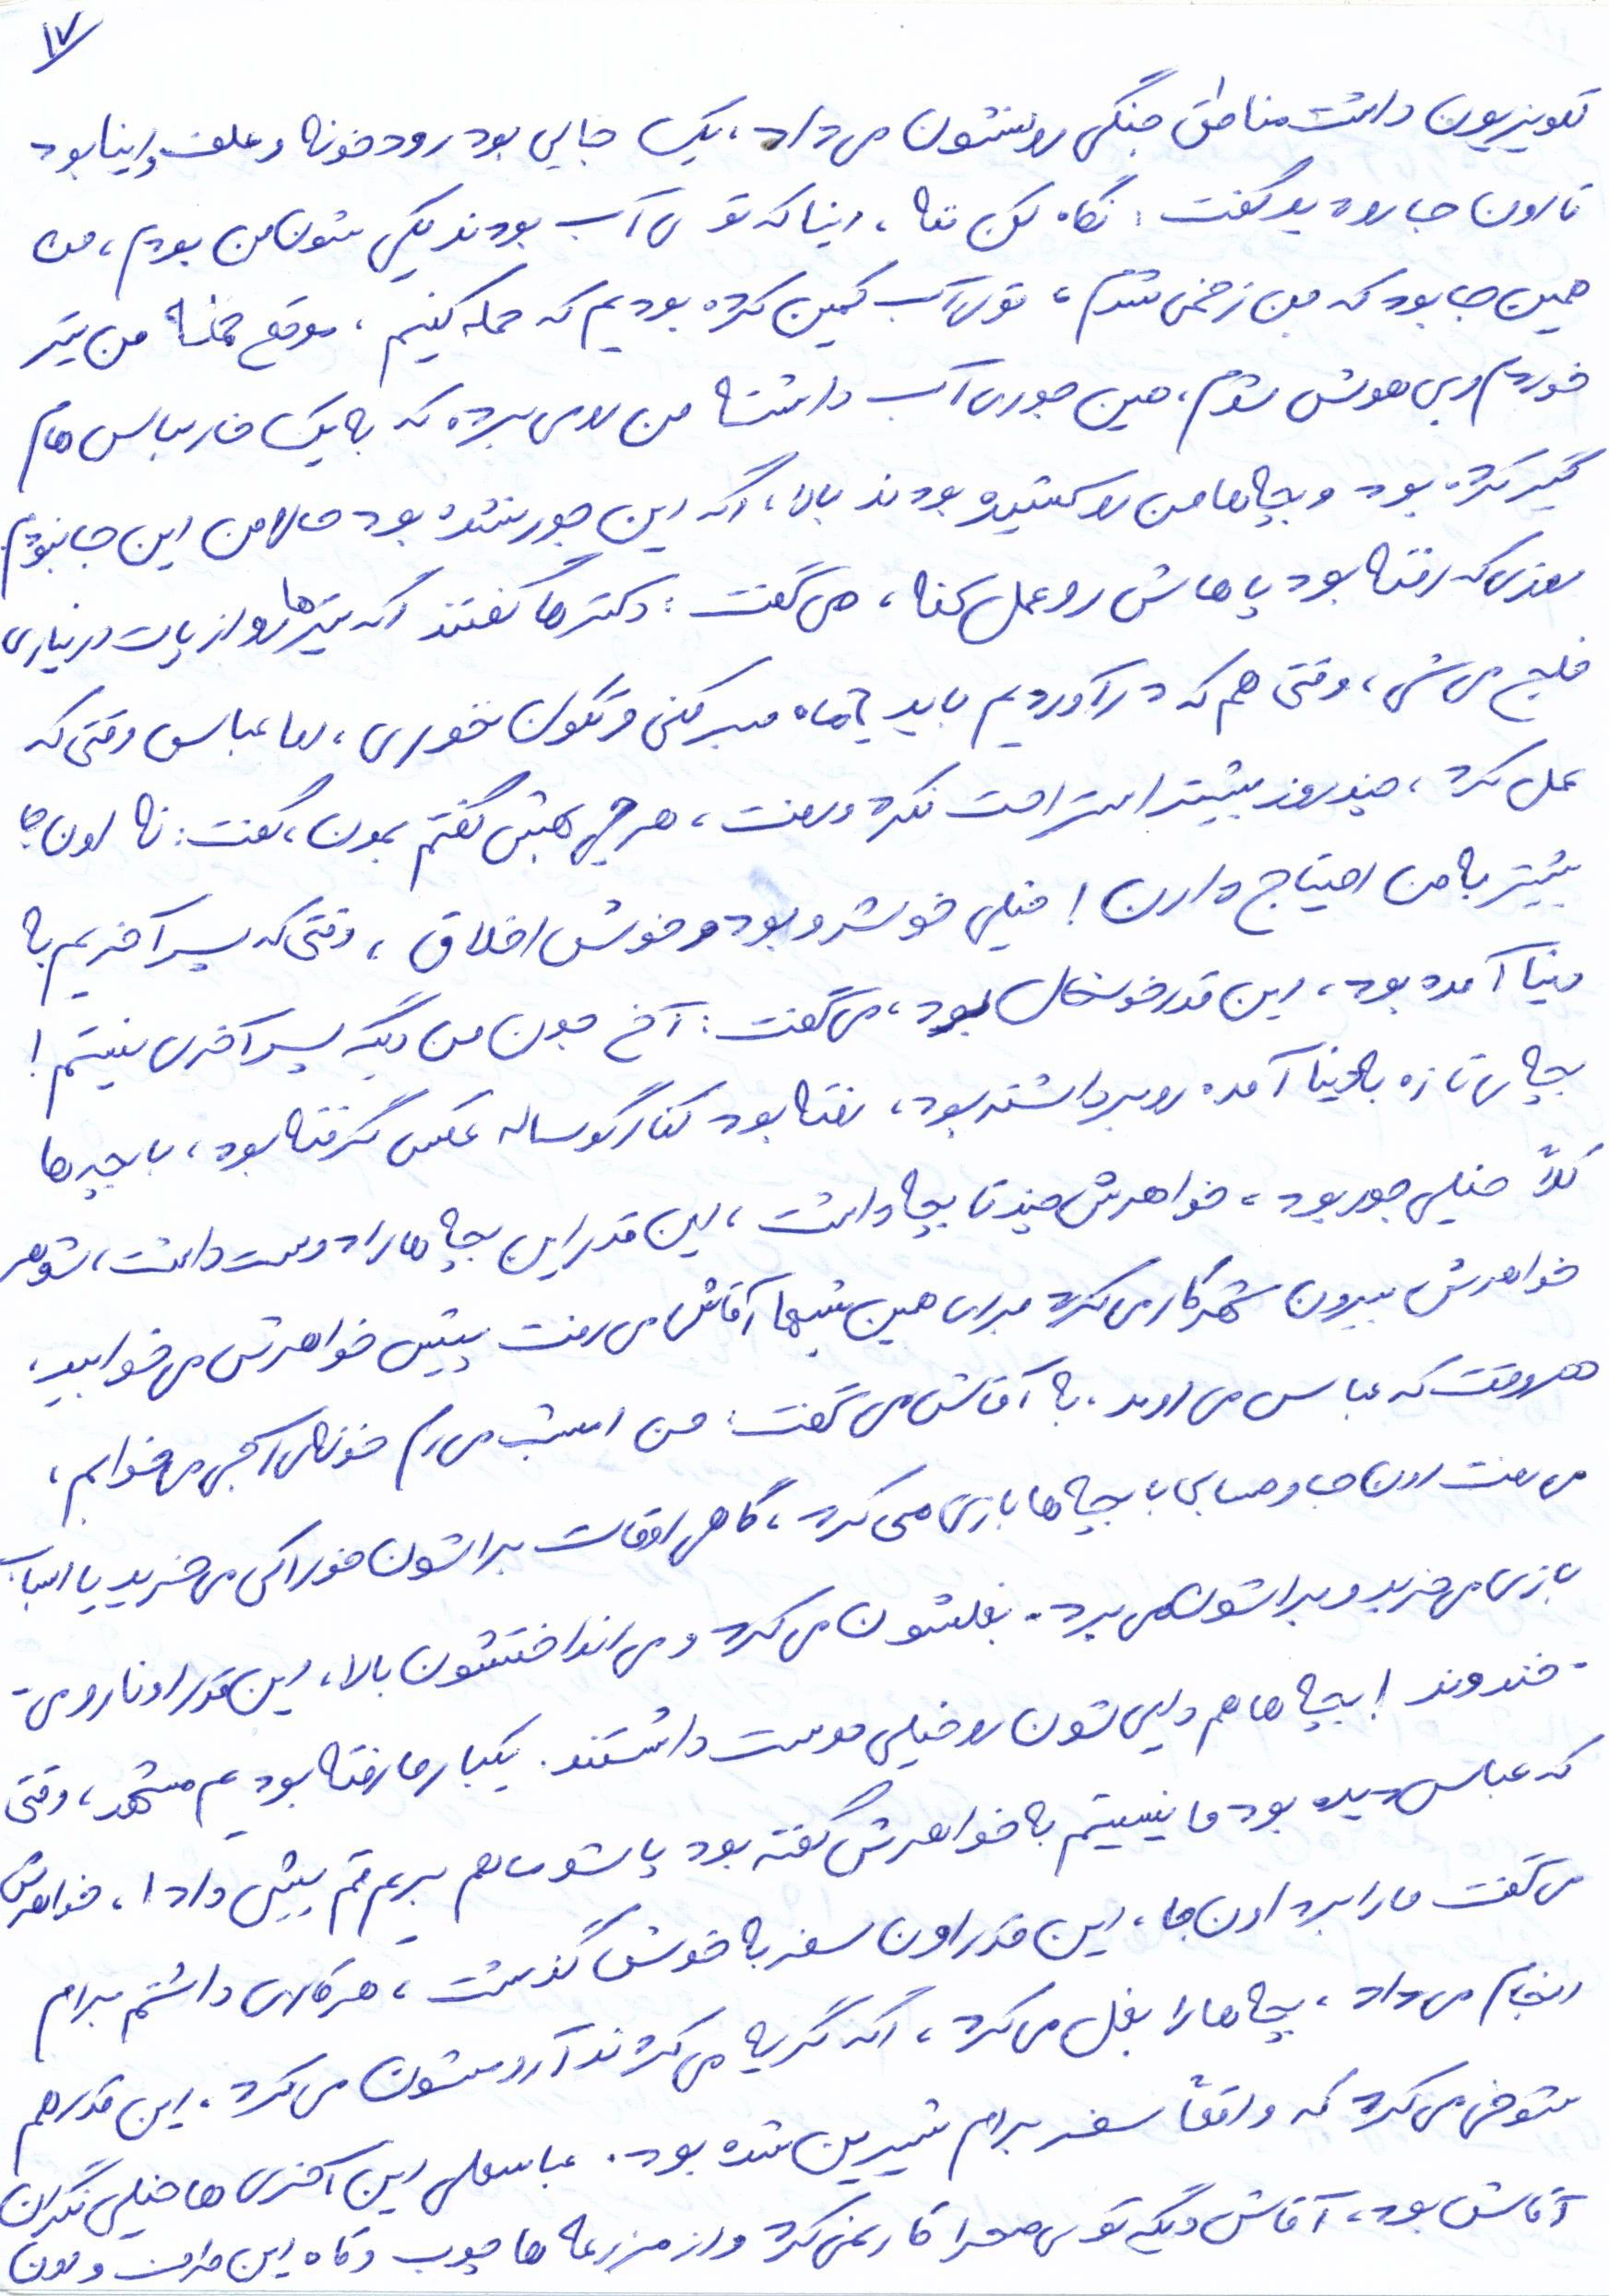 ۱۷
تلویزیون داشت مناطق جنگی رو نشون می‌داد، یک جایی بود رودخونه و علف و اینا بود
تا اون جا رو دید گفت: نگاه کن ننه، اینا که توی آب بودند یکی شون من بودم، من
همین جا بود که من زخمی شدم، توی آب کمین کرده بودیم که حمله کنیم، موقع حمله من تیر
خوردم و بی هوش شدم، همین جوری آب داشته من رو می برده که به یک خار لباس هام
گیر کرده بود و بچه ها من رو کشیده بودند بالا، اگه این جور نشده بود حالا من این جا نبودم
روزی که رفته بود پاهاش رو عمل کنه، می گفت: دکترها گفتند اگه تیرها رو از پات در نیاری
فلج می شی، وقتی هم که در آوردیم باید ۲ماه صبر کنی و تکون نخوری، اما عباس وقتی که
عمل کرد، چند روز بیشتر استراحت نکرد و رفت، هر چی بهش گفتم بمون، گفت: نه اون جا
بیشتر به من احتیاج دارن! خیلی خوشرو بود و خوش اخلاق، وقتی که پسر آخریم به
دنیا آمده بود، این قدر خوشحال بود، می گفت: آخ جون من دیگه پسر آخری نیستم!
بچه ی تازه به دنیا آمده رو برداشته بود، رفته بود کنار گوساله عکس گرفته بود، با بچه ها
کلاً خیلی جور بود، خواهرش چند تا بچه داشت، این قدر این بچه ها را دوست داشت، شوهر
خواهرش بیرون شهر کار می کرد برای همین شبها آقاش می رفت پیش خواهرش می خوابید،
هر وقت که عباس می اومد، به آقاش می گفت: من امشب می رم خونه ی آبجی می خوابم،
می رفت اون جا و حسابی با بچه ها بازی می کرد، گاهی اوقات براشون خوراکی می خرید یا اسباب
بازی می خرید و براشون می برد. بغلشون می کرد و می انداختشون بالا، این قدر اونا رو می-
-خندوند! بچه ها هم دایی شون رو خیلی دوست داشتند. یکبار ما رفته بودیم مشهد، وقتی
که عباس دیده بود ما نیستیم به خواهرش گفته بود پاشو ما هم بریم قم پیش دادا، خواهرش
می گفت ما را برد اون جا، این قدر اون سفر به خوش گذشت، هر کاری داشتم برام
انجام می داد، بچه ها را بغل می کرد، اگه گریه می کردند آرومشون می کرد. این قدر هم
شوخی می کرد که واقعاً سفر برام شیرین شده بود. عباسعلی این آخری ها خیلی نگران
آقاش بود، آقاش دیگه توی صحرا کار نمی کرد و از مزرعه ها چوب و کاه این طرف و اون